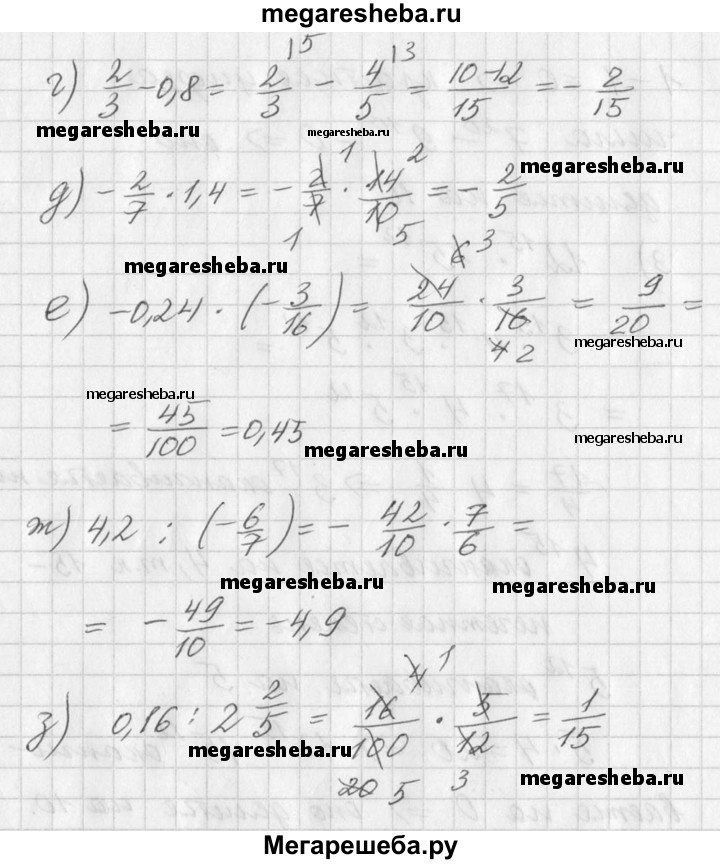 megaresheba.ru
г) 2/3 - 0,8 = 2/3 |5 - 4/5 |3 = 10-12/15 = - 2/15
megaresheba.ru megaresheba.ru megaresheba.ru
д) - 2/7 · 1,4 = - 2/7 · 14/10 = - 2/5
1 2
1 5 6 3
megaresheba.ru megaresheba.ru
е) -0,24 · (- 3/16) = 24/10 · 3/16 = 9/20 =
4 2
megaresheba.ru
megaresheba.ru
= 45/100 = 0,45
megaresheba.ru megaresheba.ru
ж) 4,2 : (- 6/7) = - 42/10 · 7/6 =
megaresheba.ru megaresheba.ru
= - 49/10 = -4,9
4 1
з) 0,16 : 2 2/5 = 16/100 · 5/12 = 1/15
20 5 3
megaresheba.ru megaresheba.ru
Мегарешеба.ру